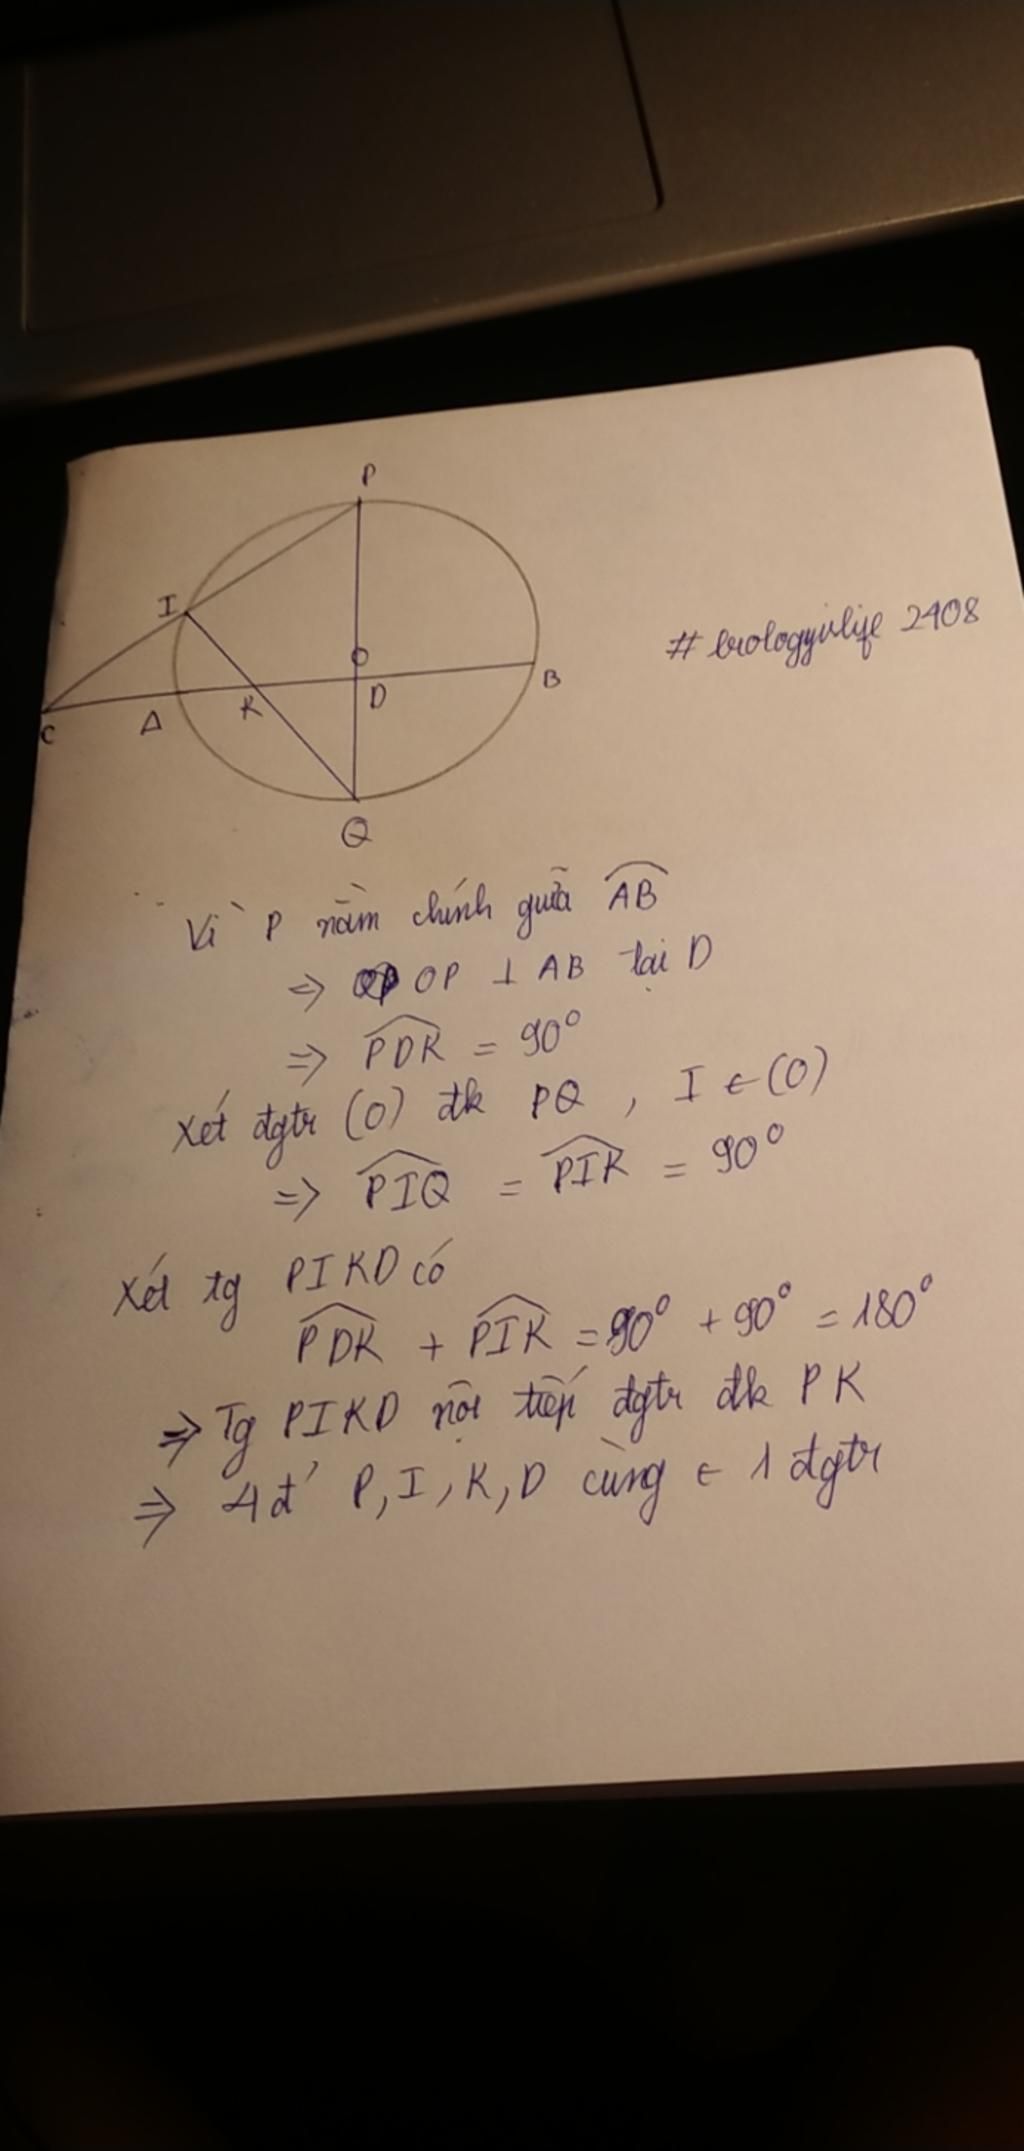 P
I
O
B
C
A
K
D
Q
# biologyvlife 2408
Vì P nằm chính giữa AB
=> OP ⊥ AB tại D
=> PDK = 90°
Xét đgtr (O) đk PQ , I ∈ (O)
=> PIQ = PIK = 90°
Xét tg PIKD có
PDK + PIK = 90° + 90° = 180°
=> Tg PIKD nội tiếp đgtr đk PK
=> 4 đ' P, I, K, D cùng ∈ 1 đgtr